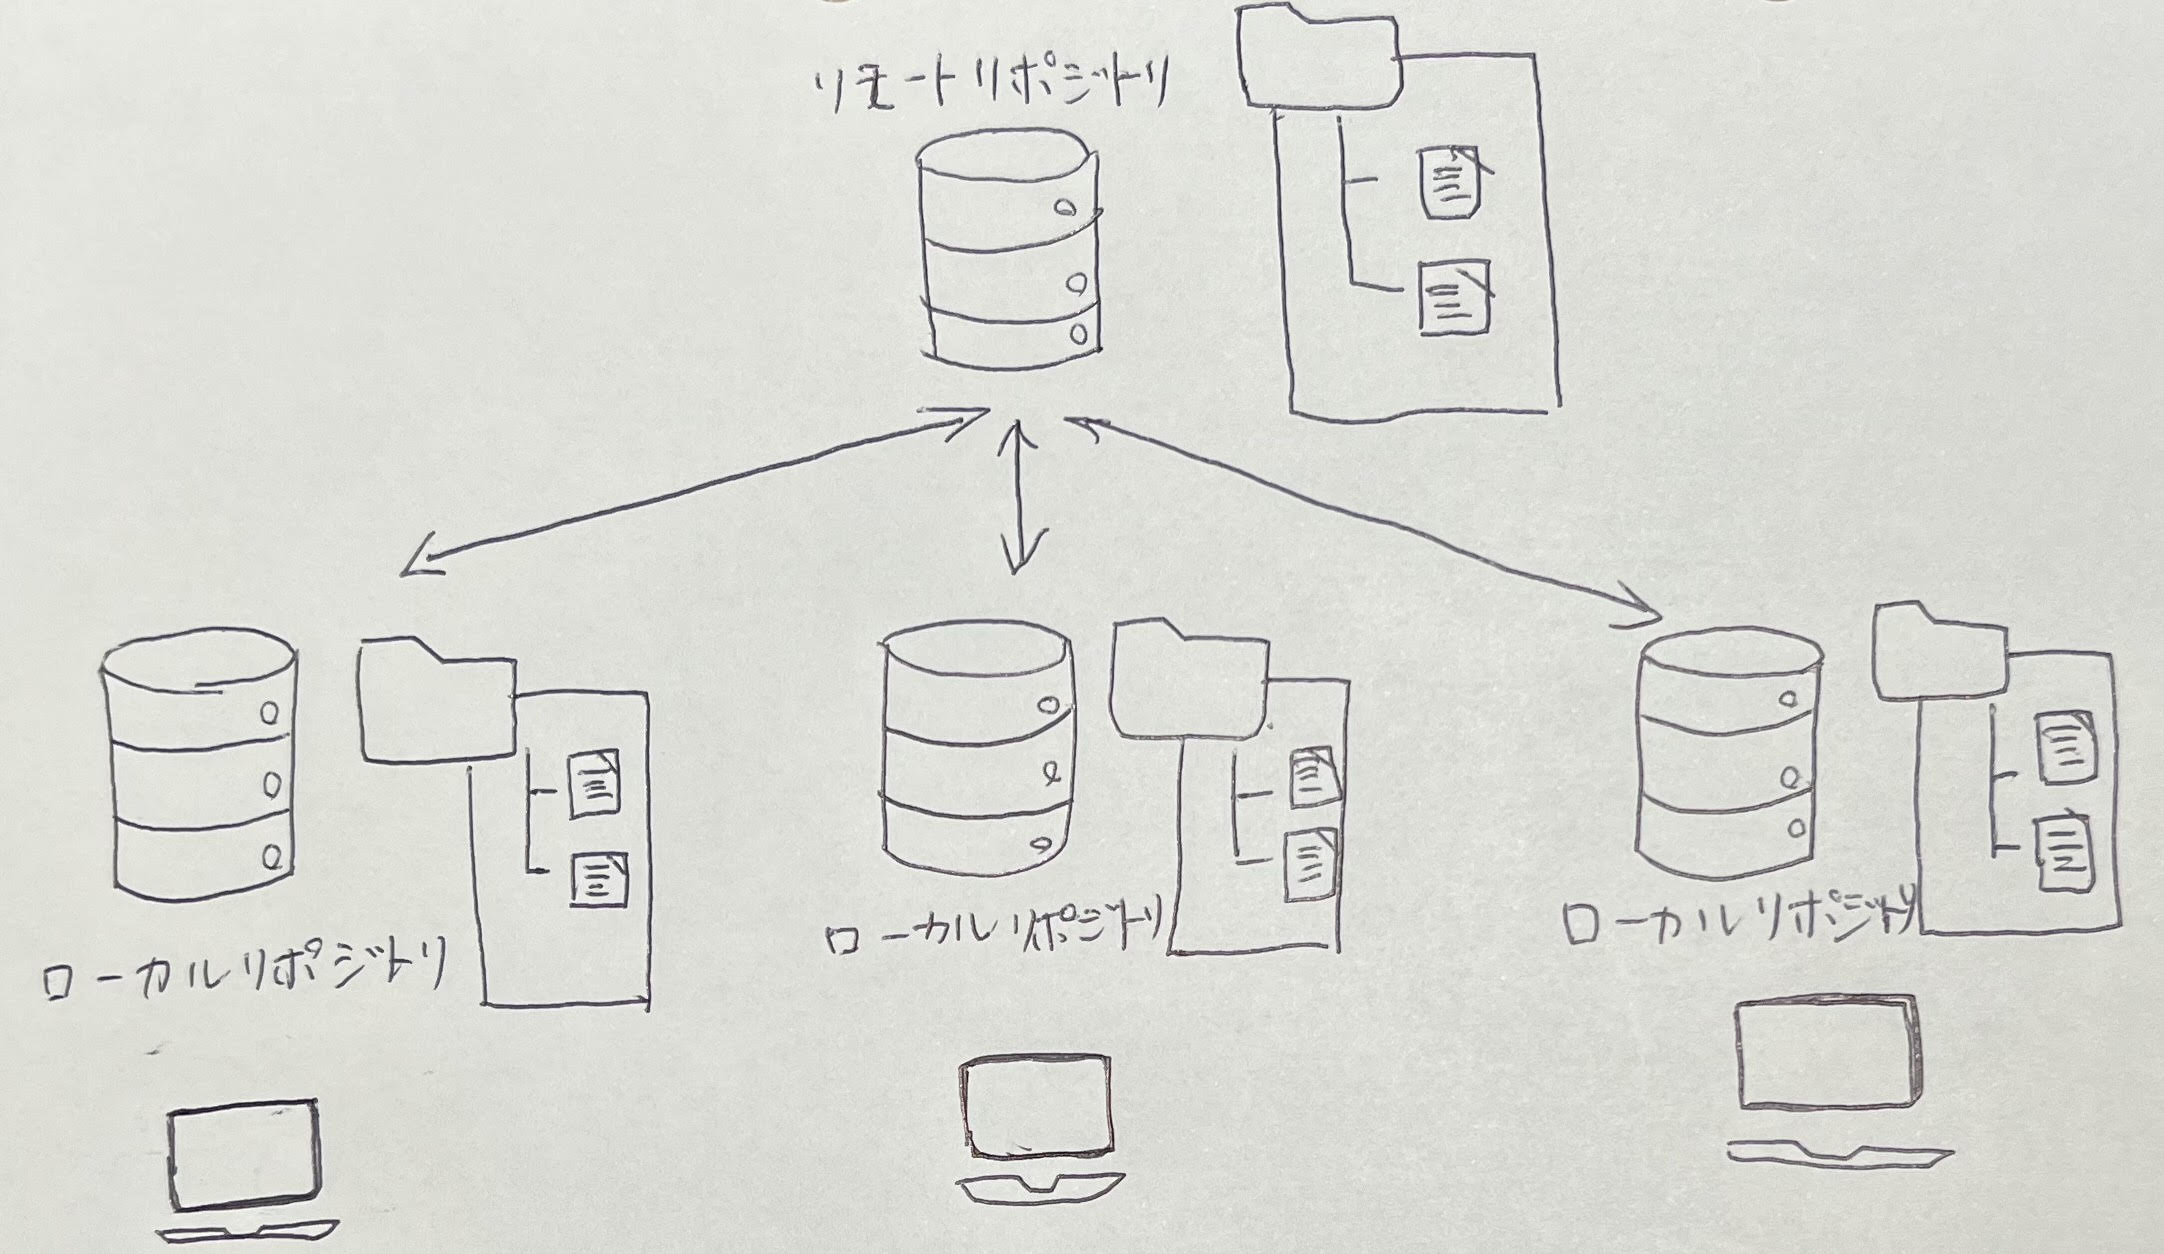 リモートリポジットリ
ローカルリポジットリ
ローカルリポジットリ
ローカルリポジットリ